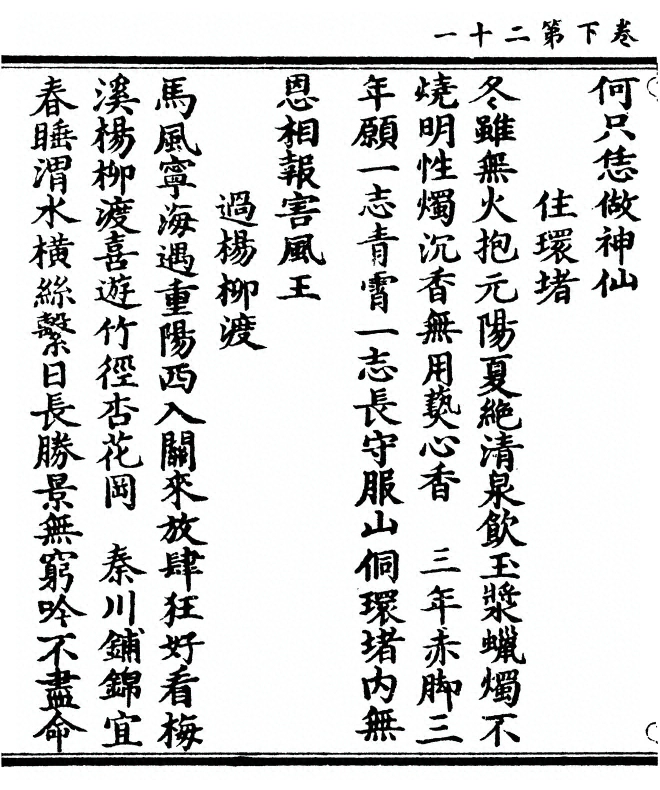 卷下第二十一
何只恁做神仙
住環堵
冬雖無火抱元陽夏絶清泉飲玉漿蠟燭不
燒明性燭沉香無用爇心香　三年赤脚三
年願一志青霄一志長守服山侗環堵内無
恩相報害風王
過楊柳渡
馬風寧海遇重陽西入關來放肆狂好看梅
溪楊柳渡喜遊竹徑杏花岡　秦川鋪錦宜
春睡渭水橫絲繫日長勝景無窮吟不盡命